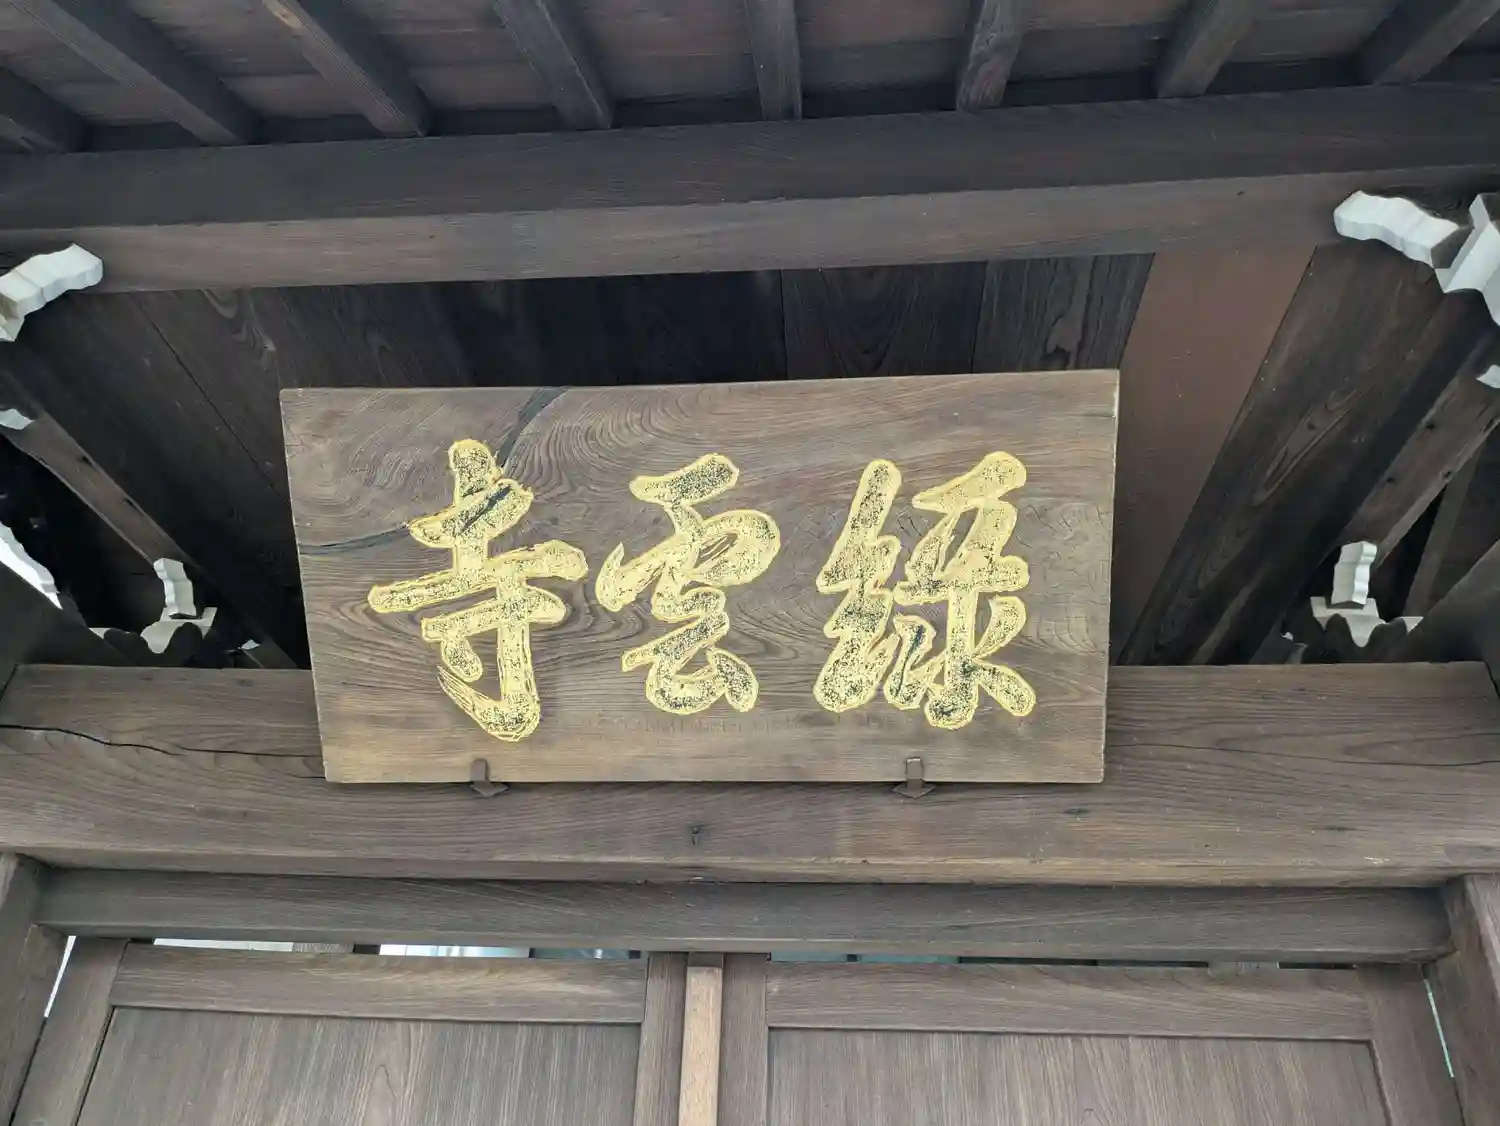 緑雲寺